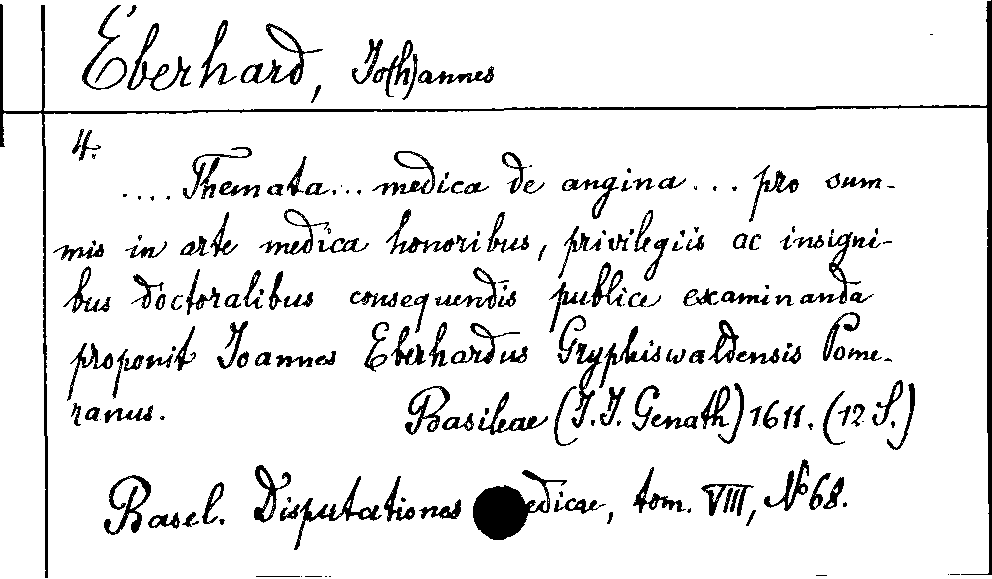 Eberhard, Jo(h)annes
4.
.... Themata... medica de angina... pro sum-
mis in arte medica honoribus, privilegiis ac insigni-
bus doctoralibus consequendis publice examinanda
proponit Joannes Eberhardus Gryphiswaldensis Pome-
ranus. Basileae (J.J. Genath) 1611. (12 S.)
Basel. Disputationes edicae, tom. VIII, No 68.